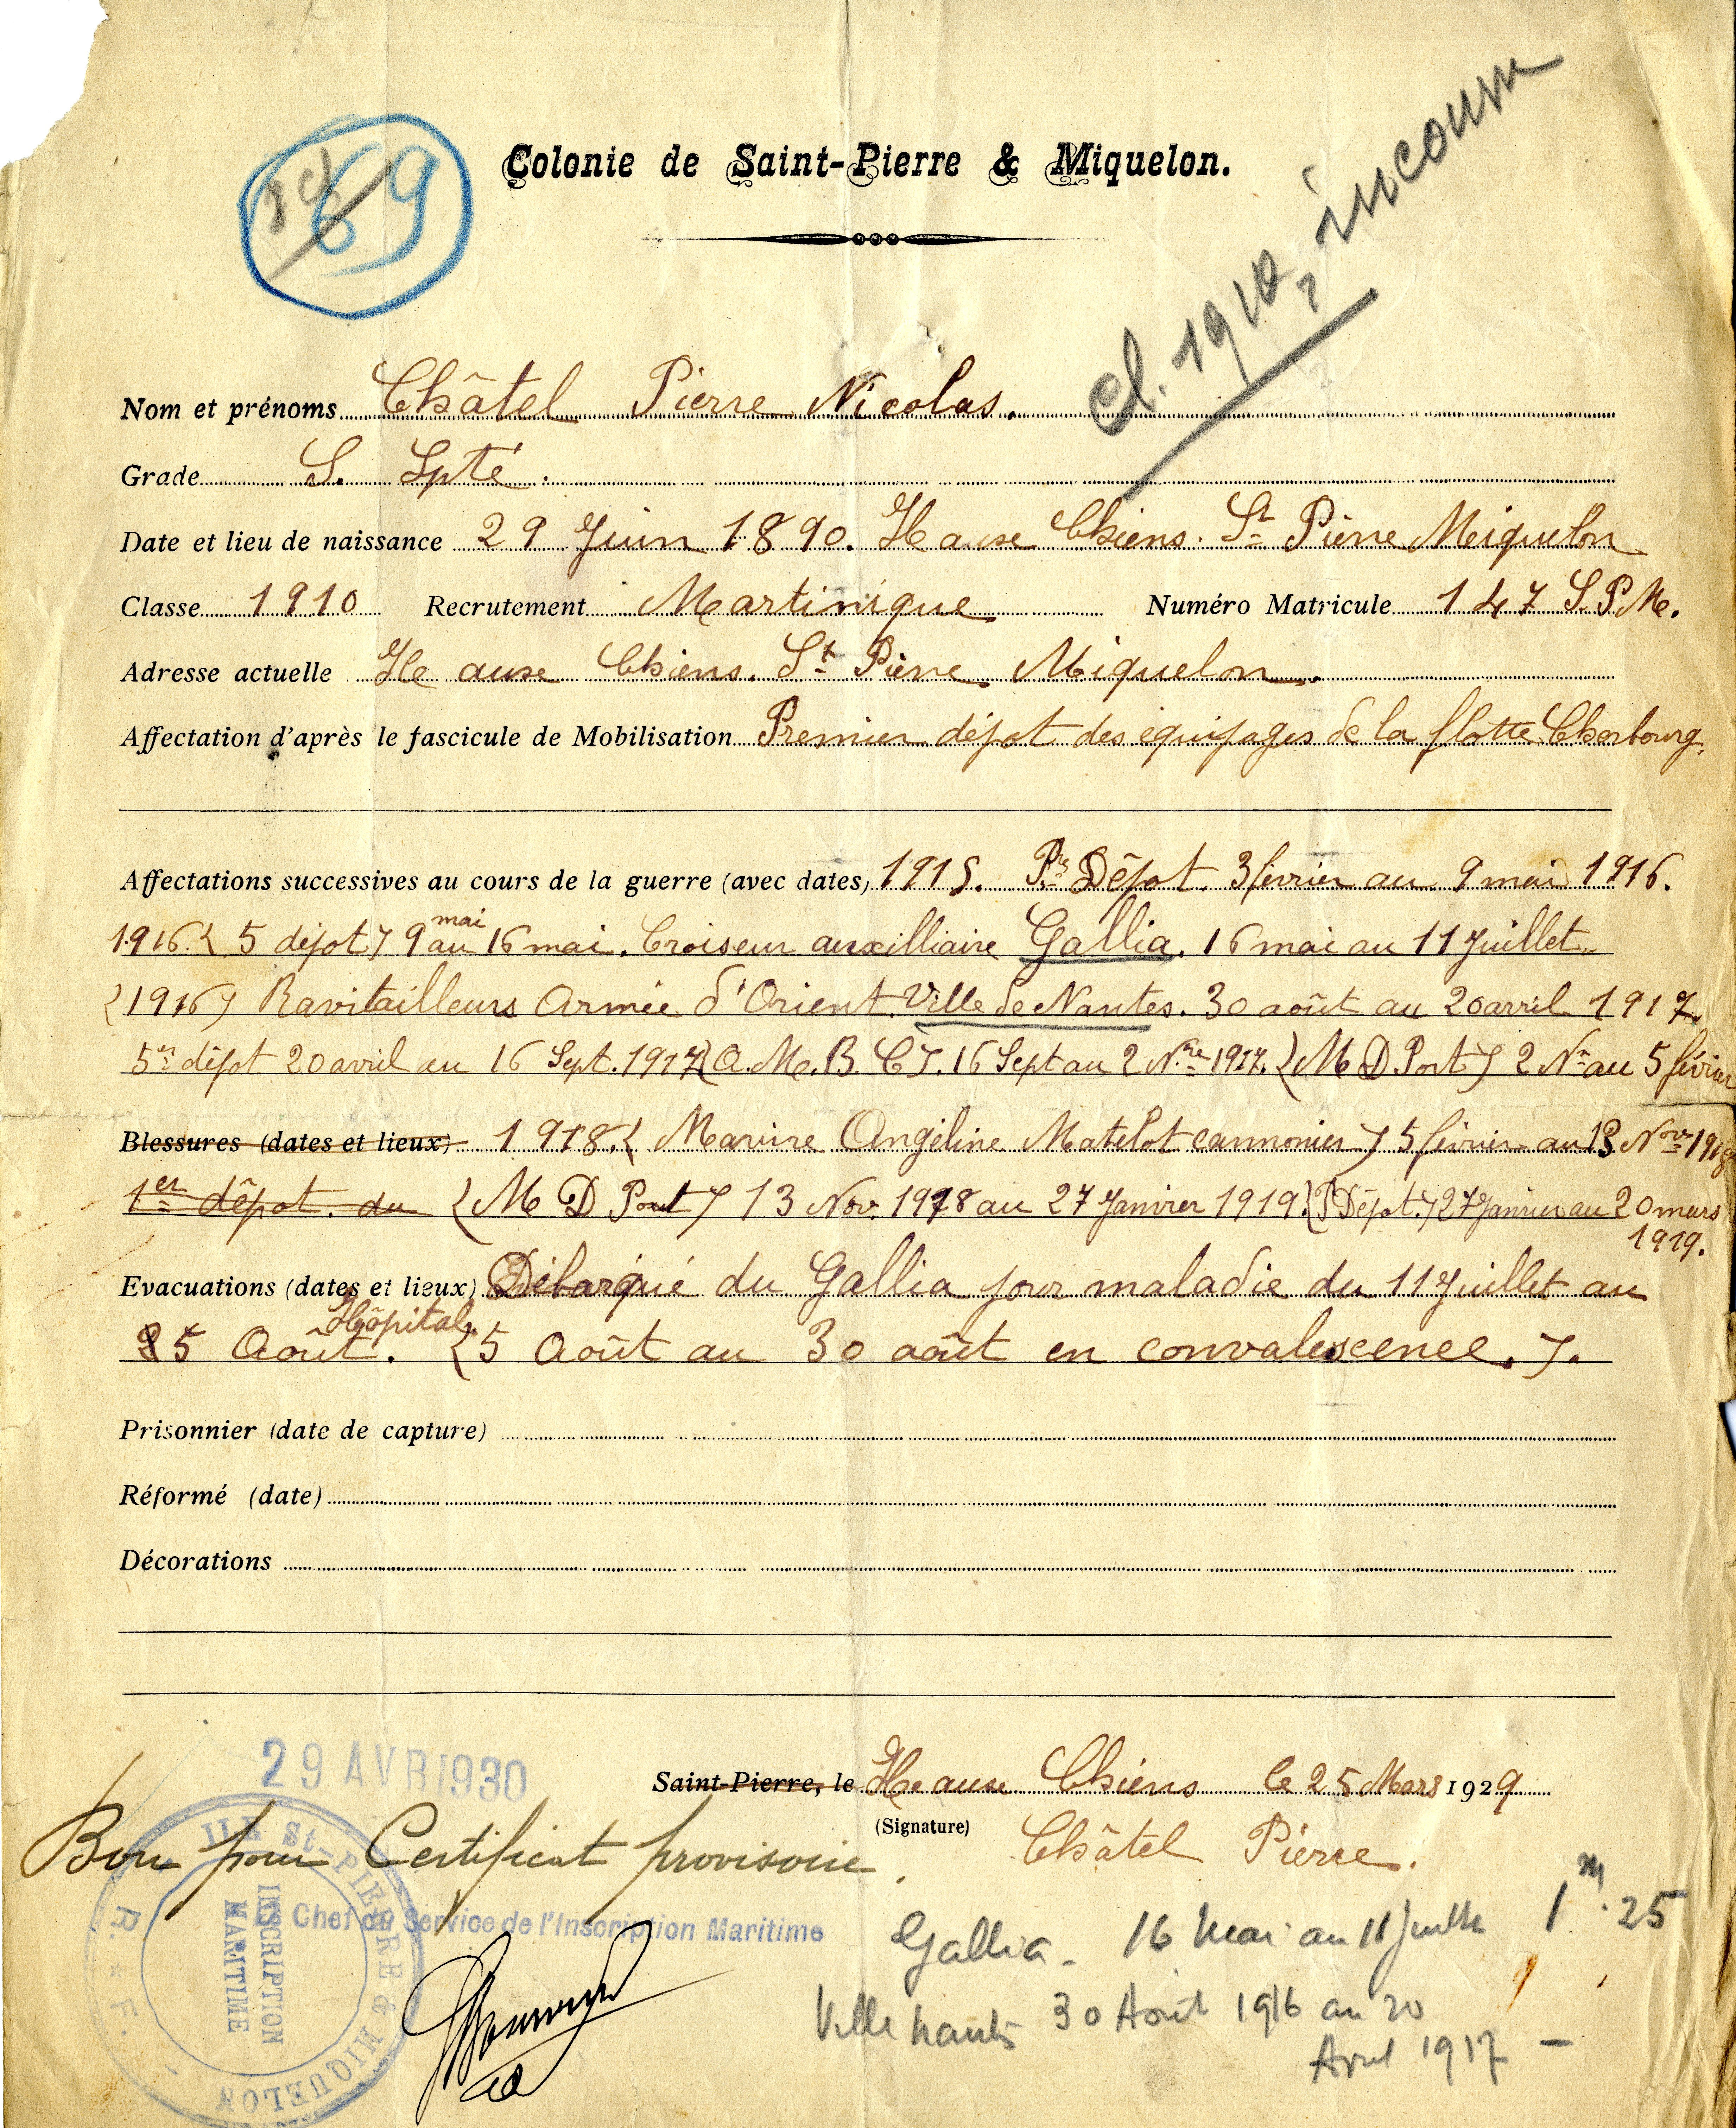 69
Colonie de Saint-Pierre & Miquelon.
Cl. 1910, inconnu
Nom et prénoms Châtel Pierre Nicolas.
Grade S. Spté.
Date et lieu de naissance 29 Juin 1890. Ile aux Chiens. St Pierre Miquelon
Classe 1910 Recrutement Martinique Numéro Matricule 147 S.P.M.
Adresse actuelle Ile aux Chiens. St Pierre Miquelon
Affectation d'après le fascicule de Mobilisation Premier dépot des équipages de la flotte Cherbourg.
Affectations successives au cours de la guerre (avec dates) 1915. Pr Dépot. 3 février au 9 mai 1916.
1916. ( 5 dépot ) 9 mai au 16 mai. Croiseur auxilliaire Gallia. 16 mai au 11 Juillet.
(1916) Ravitailleurs Armée d'Orient Ville de Nantes. 30 août au 20 avril 1917.
5er dépot 20 avril au 16 Sept. 1917 (A. M. B. C). 16 Sept au 2 Nre 1917. (M D Port) 2 Nre au 5 février
Blessures (dates et lieux) 1918. ( Marine Angéline Matelot cannonier ) 5 février au 13 Nov 1918
1er dépot. du (M D Port) 13 Nov. 1918 au 27 Janvier 1919. (P Dépot.) 27 Janvier au 20 mars
1919.
Evacuations (dates et lieux) Débarqué du Gallia pour maladie du 11 Juillet au
25 Août. Hôpital. (5 Août au 30 août en convalescence.).
Prisonnier (date de capture)
Réformé (date)
Décorations
29 AVR 1930
Saint-Pierre, le Ile aux Chiens le 25 Mars 1929
(Signature) Châtel Pierre.
Bon pour Certificat provisoire.
Chef du Service de l'Inscription Maritime
ILE St-PIERRE & MIQUELON
R. * F.
INSCRIPTION
MARITIME
Gallia - 16 Mai au 11 Juillet 1m.25
Ville Nantes 30 Août 1916 au 20
Avril 1917 —